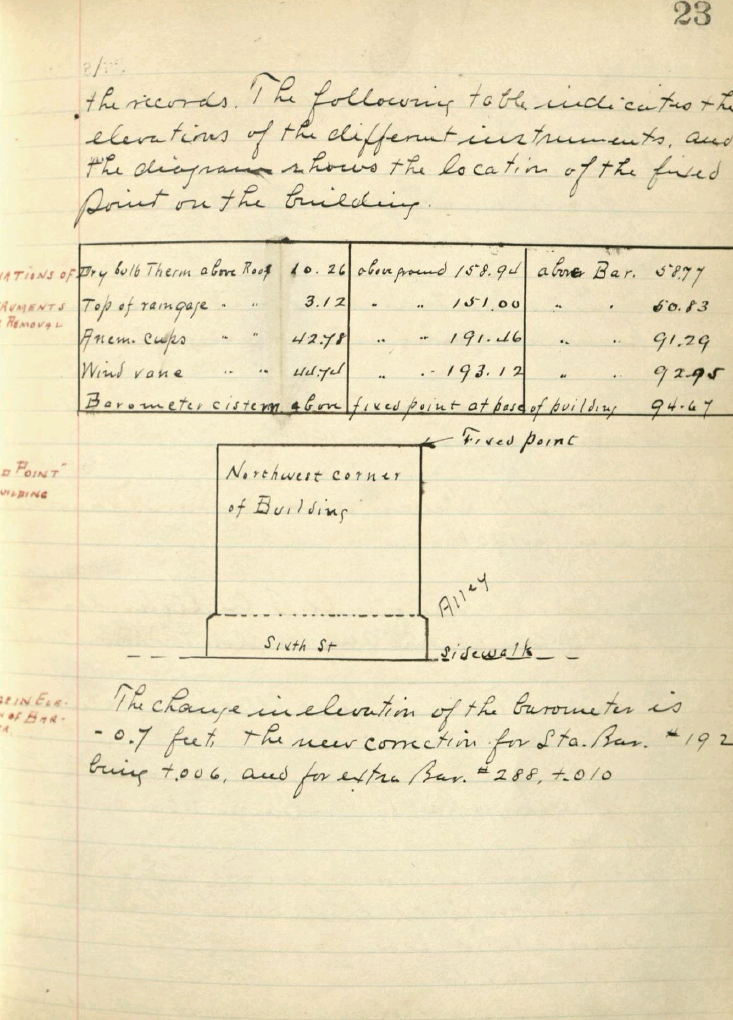 23
the records. The following table indicates the
elevations of the different instruments, and
the diagram shows the location of the fixed
point on the building.
ATIONS OF
RUMENTS
REMOVAL
Dry bulb Therm above Roof 10.26 above ground 158.94 above Bar. 58.77
Top of raingage " " 3.12 " " 151.00 " " 50.83
Anem. cups " " 42.78 " " 191.46 " " 91.29
Wind vane " " 44.74 " " 193.12 " " 92.95
Barometer cistern above fixed point at base of building 94.67
Fixed point
D POINT"
UILDING
Northwest corner
of Building
Alley
Sixth St
Sidewalk
GE IN ELE-
N OF BAR-
R.
The change in elevation of the barometer is
-0.7 feet, the new correction for Sta. Bar. #192
being +.006, and for extra Bar. #288, +.010